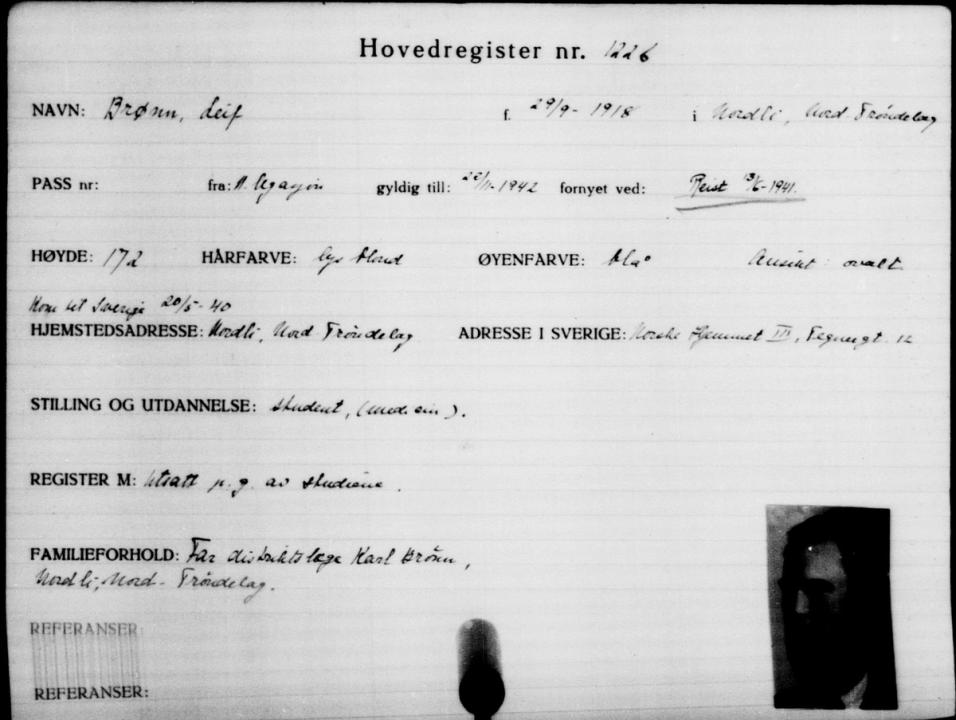 Hovedregister nr. 1226
NAVN: Brønn, Leif f. 29/9-1918 i Nordli, Nord-Tröndelag
PASS nr: fra: N. legasjon gyldig till: 22/11-1942 fornyet ved: Reist 13/6-1941.
HØYDE: 172 HÅRFARVE: lys blond ØYENFARVE: blå Ansikt: ovalt
Kom til Sverige 20/5-40
HJEMSTEDSADRESSE: Nordli, Nord-Tröndelag ADRESSE I SVERIGE: Norske Hjemmet III, Tegnergt. 12
STILLING OG UTDANNELSE: student, (medisin).
REGISTER M: Utsatt p.g. av studiene.
FAMILIEFORHOLD: Far distriktslege Karl Brönn,
Nordli, Nord-Tröndelag.
REFERANSER:
REFERANSER: